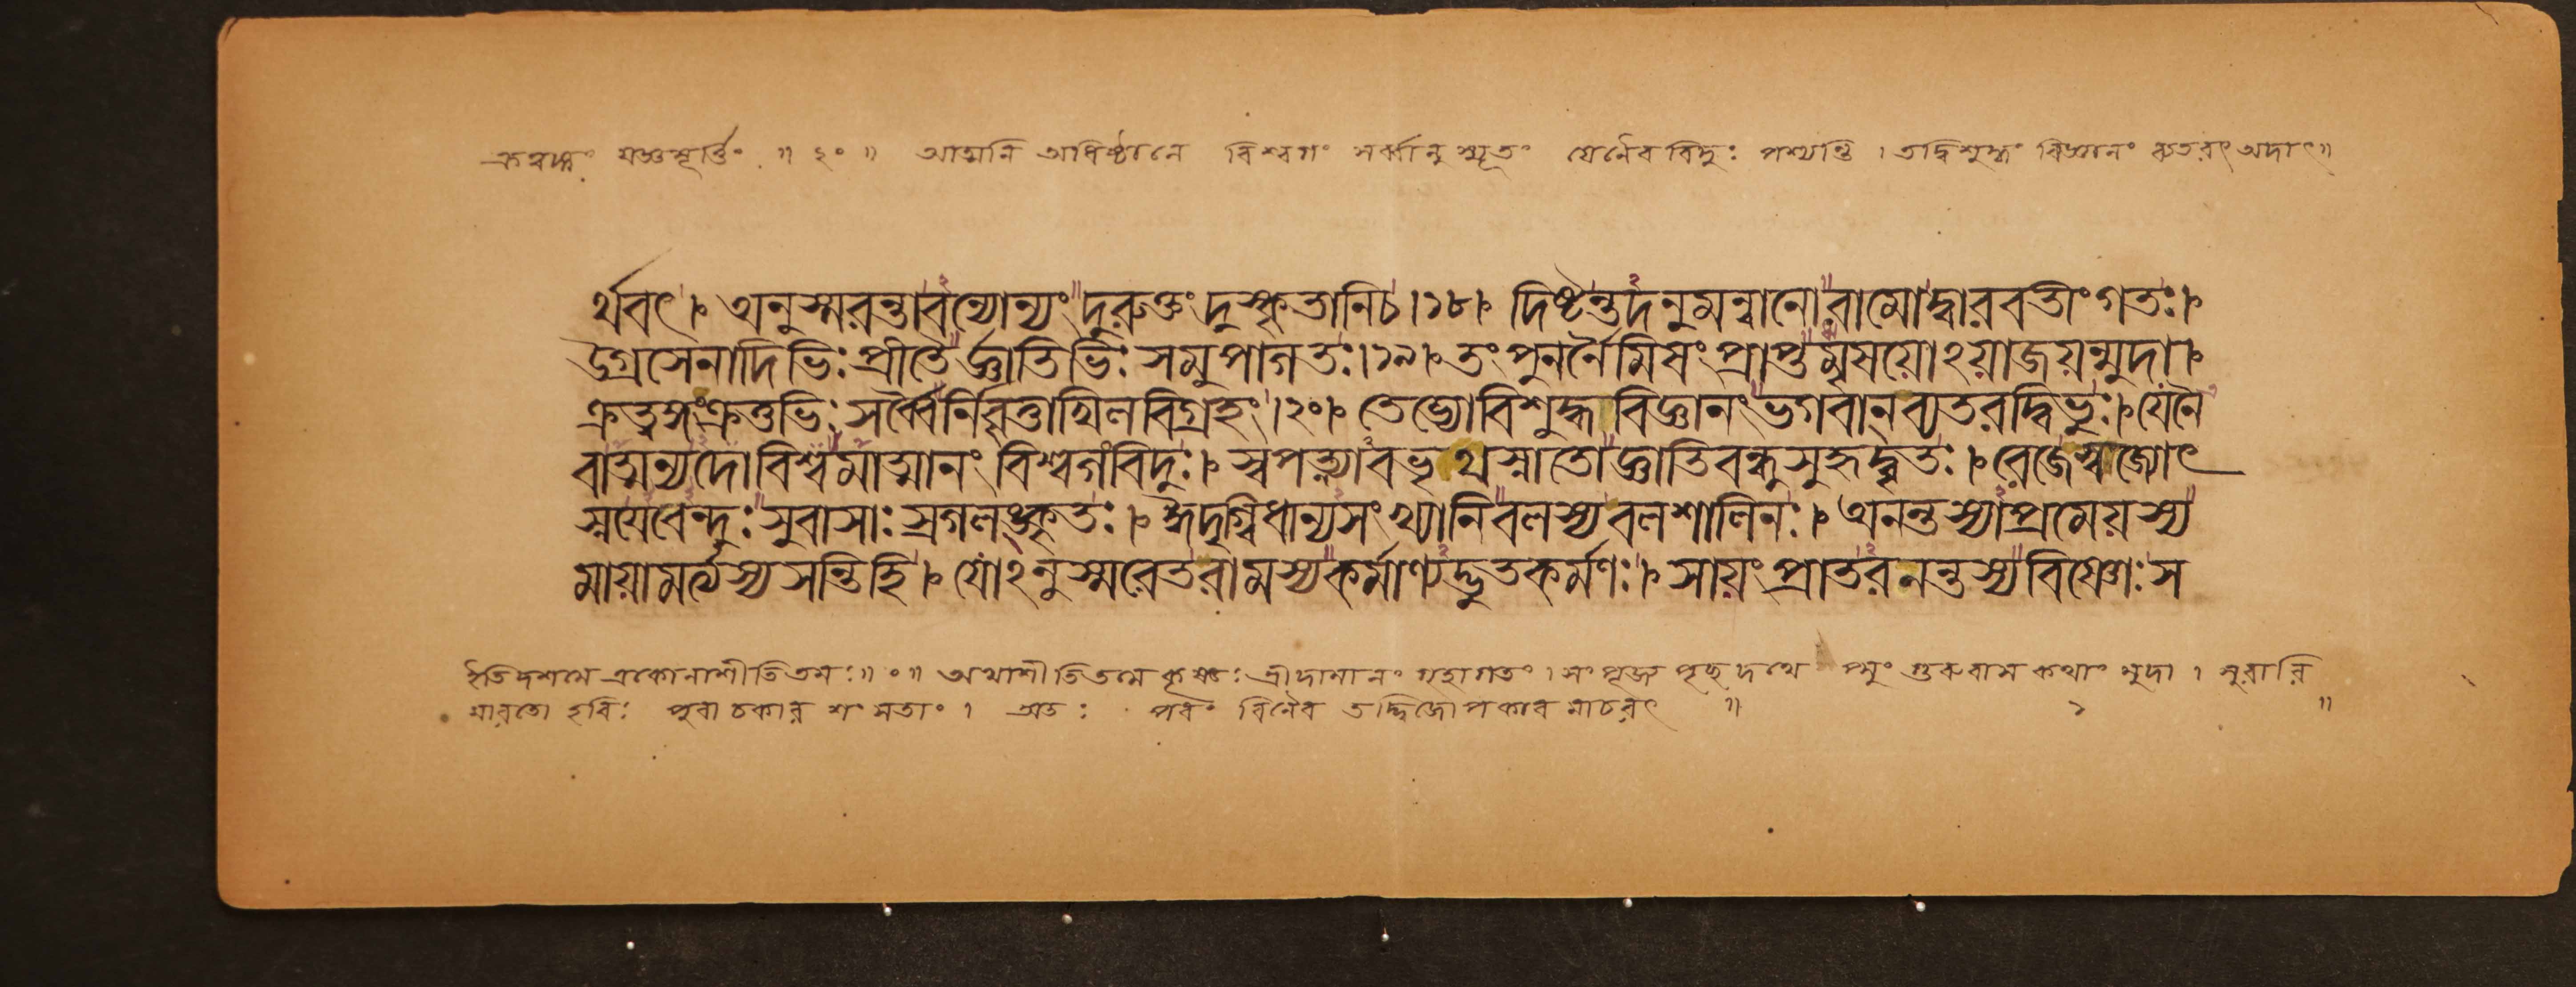 ক্রত্বঙ্গং যজ্ঞমূর্ত্তিং ॥ ২০ ॥ আত্মনি অধিষ্ঠানে বিশ্বগং সর্ব্বানুস্মূতং যেনৈব বিদুঃ পশ্যন্তি । তদ্বিশুদ্ধং বিজ্ঞানং ব্যতরৎ অদাৎ ॥
র্থবৎ । অনুস্মরন্তাবন্যোন্যং দুরুক্তং দুস্কৃতানিচ । ১৮ । দিষ্টন্তদনুমন্বানো রামোদ্বারবতীংগতঃ ।
উগ্রসেনাদিভিঃ প্রীতৈর্জ্ঞাতিভিঃ সমুপাগতঃ । ১৯ । তং পুনর্নৈমিষং প্রাপ্তমৃষয়োঽয়াজয়ন্মুদা ।
ক্রত্বঙ্গং ক্রতুভিঃ সর্ব্বৈর্নিবৃত্তাখিলবিগ্রহং । ২০ । তেভ্যোবিশুদ্ধবিজ্ঞানং ভগবানব্যতরদ্বিভুঃ । যেনৈ
বাত্মন্যদো বিশ্বমাত্মানং বিশ্বগংবিদুঃ । স্বপত্ন্যাবভৃথস্নাতো জ্ঞাতিবন্ধুসুহৃদ্বৃতঃ । রেজেস্বজ্যোৎ
স্নয়েবেন্দুঃ সুবাসাঃ স্রগলঙ্কৃতঃ । ঈদৃগ্বিধান্যসংখ্যানি বলস্য বলশালিনঃ । অনন্তস্যাপ্রমেয়স্য
মায়ামর্ত্যস্য সন্তিহি । যোঽনুস্মরেত রামস্য কর্মাণ্যদ্ভুতকর্মণঃ । সায়ং প্রাতরনন্তস্য বিষ্ণোঃ স
ইতিদশমে একোনাশীতিতমঃ ॥ ০ ॥ অথাশীতিতমে কৃষ্ণঃ শ্রীদামানং গৃহাগতং । সংপূজ্য গুরুবাস কথাং মুদা । মুরারি
হরিঃ পুরা চকার । অতঃ পরং বিনৈব ॥ ১ ॥